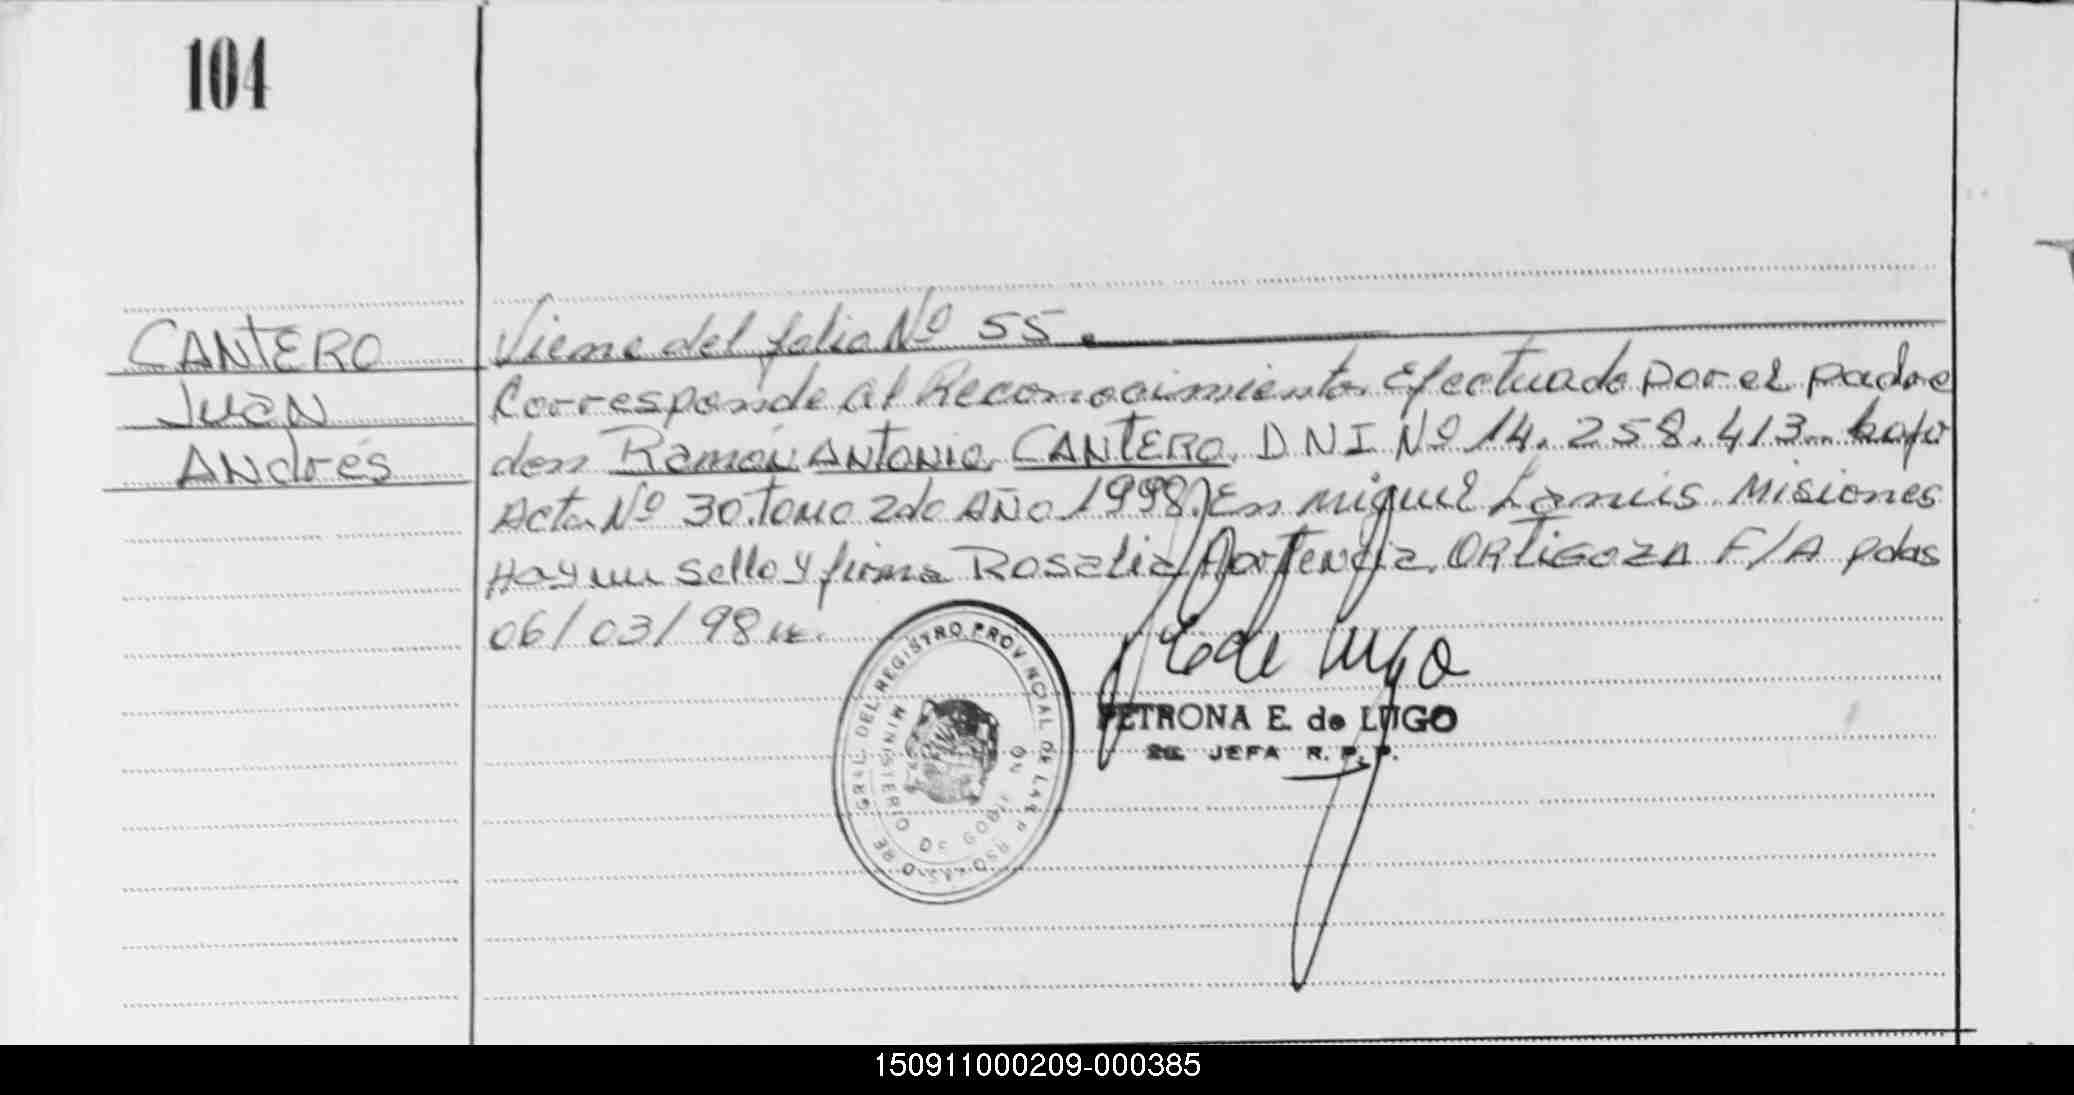 104
CANTERO
JUAN
ANdrés
Viene del folio Nº 55.
Corresponde al Reconocimiento Efectuado por el padre
don Ramón ANTONIO CANTERO DNI Nº 14.258.413 bajo
Acta Nº 30. tomo 2do Año 1998. En Miguel Lanus Misiones
Hay un sello y firma Rosalia Hortencia ORTIGOZA F/A Pdas
06/03/98
REGISTRO PROVINCIAL DE LAS
GRAL. DEL
MINISTERIO DE GOBIE NO
E de Lugo
PETRONA E. de LUGO
JEFA R. P. P.
150911000209-000385